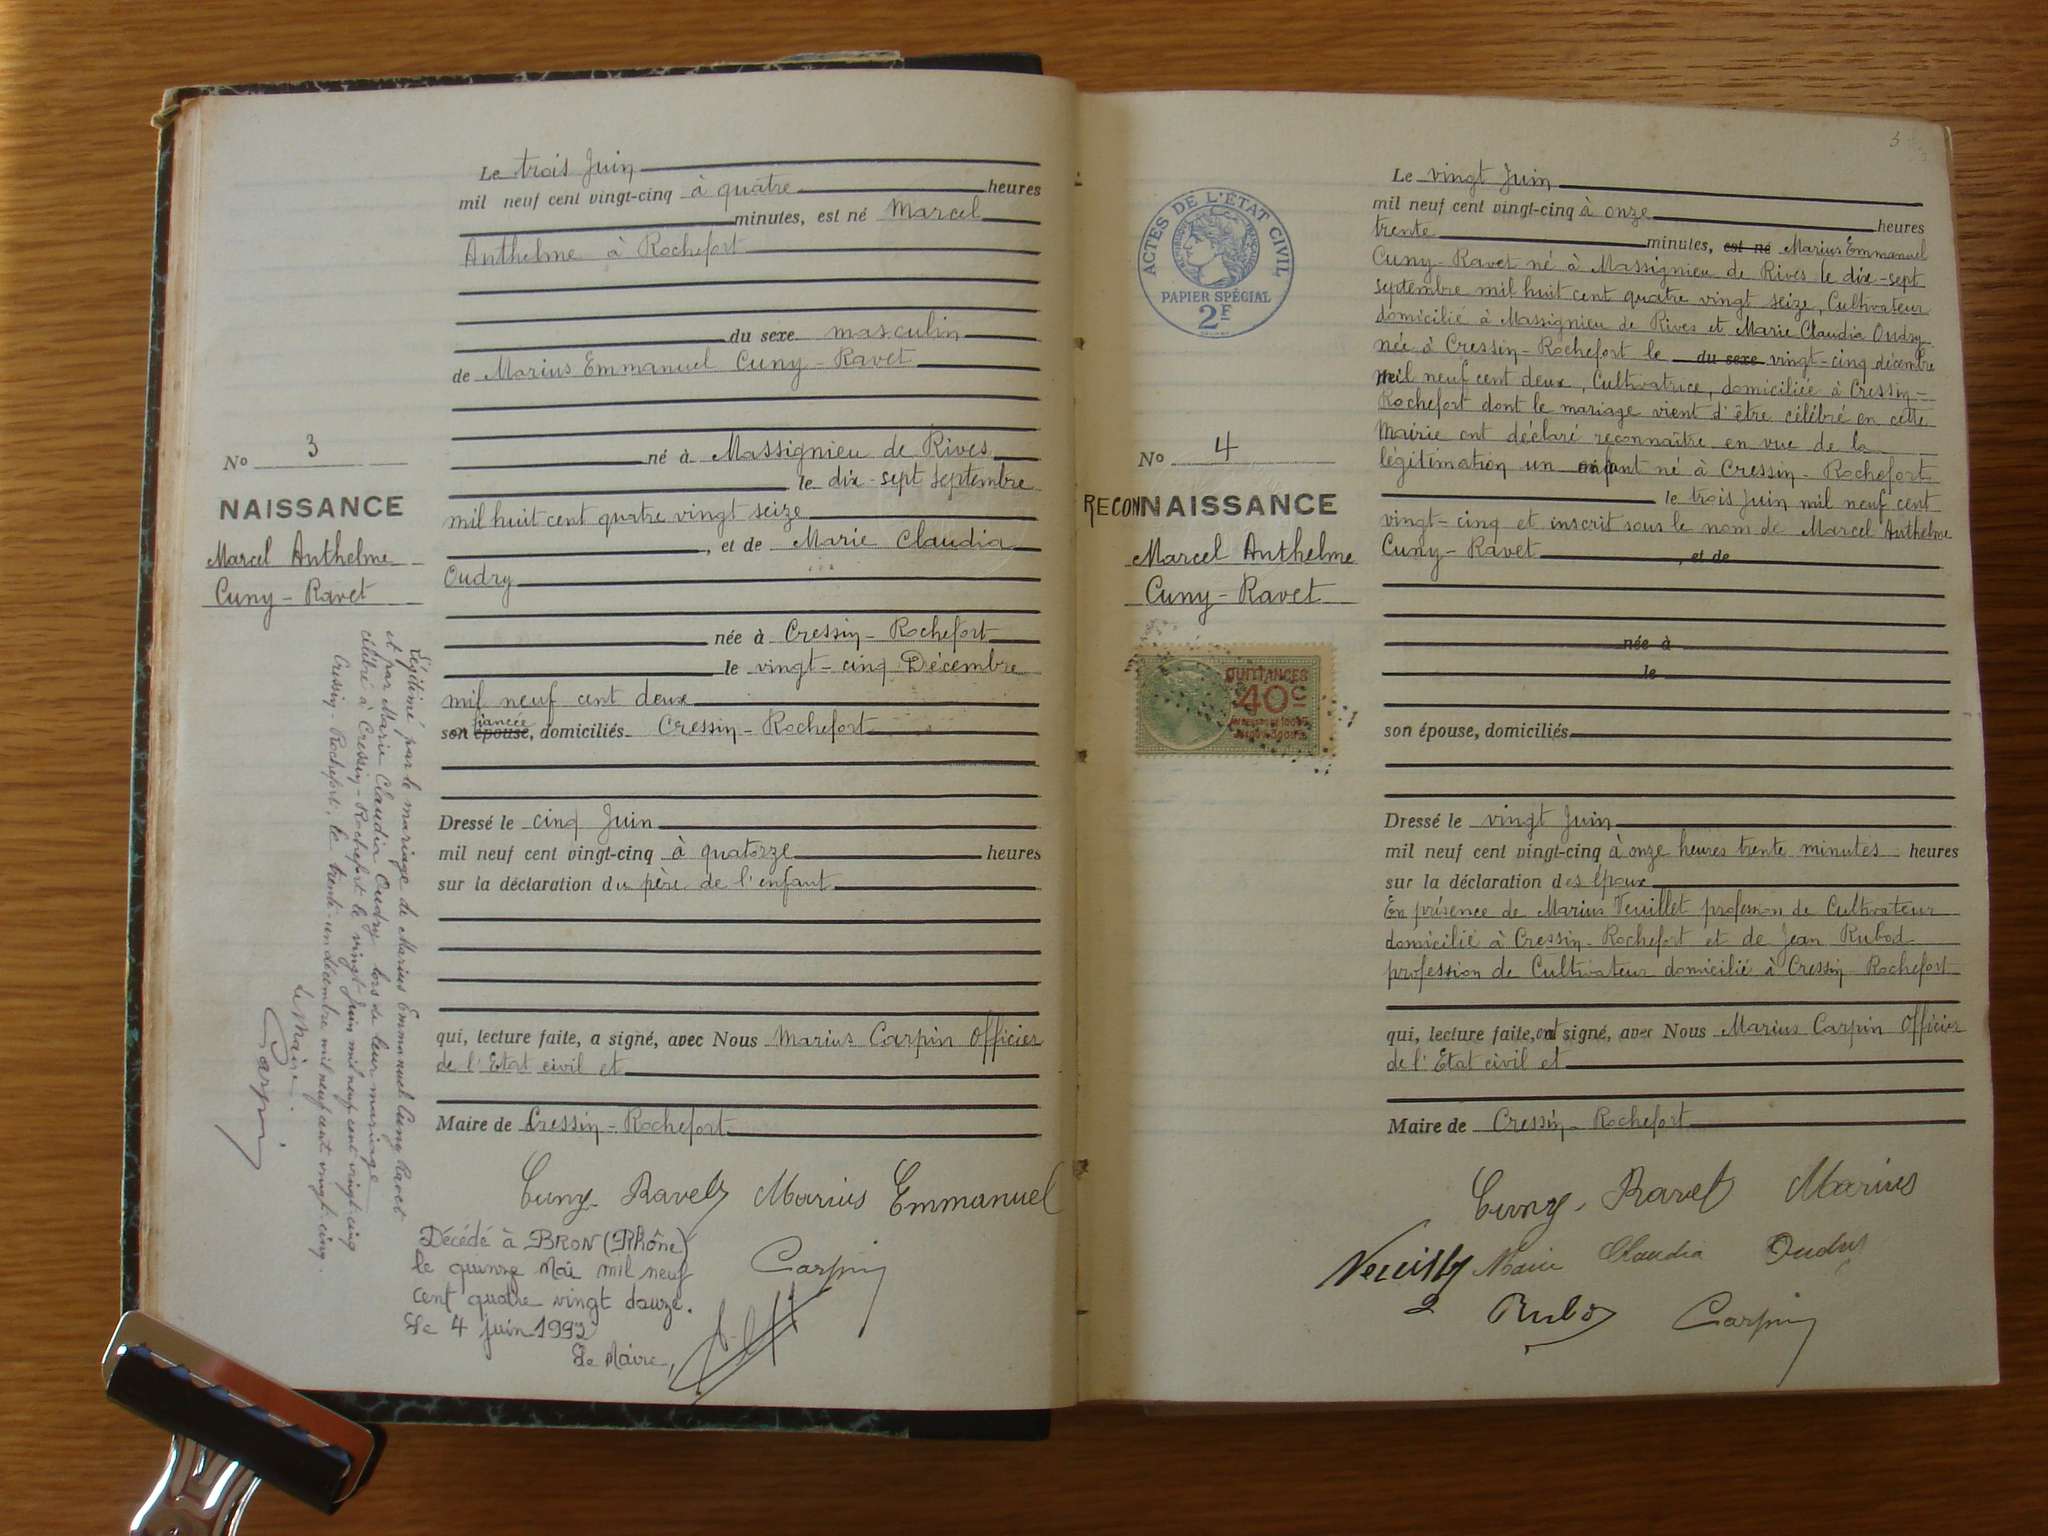 Le trois Juin
mil neuf cent vingt-cinq à quatre heures
minutes, est né Marcel
Anthelme à Rochefort
du sexe masculin
de Marius Emmanuel Cuny-Ravet
né à Massignieu de Rives
le dix-sept Septembre
mil huit cent quatre vingt seize
, et de Marie Claudia
Oudry
née à Cressin-Rochefort
le vingt-cinq Décembre
mil neuf cent deux
fiancée
son épouse, domiciliés Cressin-Rochefort
Dressé le cinq Juin
mil neuf cent vingt-cinq à quatorze heures
sur la déclaration du père de l'enfant
qui, lecture faite, a signé, avec Nous Marius Carpin Officier
de l'Etat civil et
Maire de Cressin-Rochefort
Cuny-Ravet Marius Emmanuel
Carpin
Décédé à BRON (Rhône)
le quinze Mai mil neuf
cent quatre vingt douze.
Le 4 juin 1992
Le Maire,
No 3
NAISSANCE
Marcel Anthelme
Cuny-Ravet
Légitimé par le mariage de Marius Emmanuel Cuny Ravet
et par Marie Claudia Oudry lors de leur mariage
célébré à Cressin-Rochefort le vingt Juin mil neuf cent vingt-cinq
Cressin-Rochefort, le trente-un décembre mil neuf cent vingt-cinq.
Le Maire.
Carpin
3
ACTES DE L'ÉTAT CIVIL
PAPIER SPÉCIAL
2F
No 4
RECONNAISSANCE
Marcel Anthelme
Cuny-Ravet
QUITTANCES
40c
Le vingt Juin
mil neuf cent vingt-cinq à onze heures
trente minutes, est né Marius Emmanuel
Cuny-Ravet né à Massignieu de Rives le dix-sept
septembre mil huit cent quatre vingt seize, Cultivateur
domicilié à Massignieu de Rives et Marie Claudia Oudry
née à Cressin-Rochefort le du sexe vingt-cinq décembre
mil neuf cent deux, Cultivatrice, domiciliée à Cressin-
Rochefort dont le mariage vient d'être célébré en cette
Mairie ont déclaré reconnaître en vue de la
légitimation un enfant né à Cressin-Rochefort
le trois Juin mil neuf cent
vingt-cinq et inscrit sous le nom de Marcel Anthelme
Cuny-Ravet , et de
née à
le
son épouse, domiciliés
Dressé le vingt Juin
mil neuf cent vingt-cinq à onze heures trente minutes heures
sur la déclaration des époux
En présence de Marius Veuillet profession de Cultivateur
domicilié à Cressin-Rochefort et de Jean Rubod
profession de Cultivateur domicilié à Cressin-Rochefort
qui, lecture faite, ont signé, avec Nous Marius Carpin Officier
de l'Etat civil et
Maire de Cressin-Rochefort
Cuny-Ravet Marius
Marie Claudia Oudry
Carpin